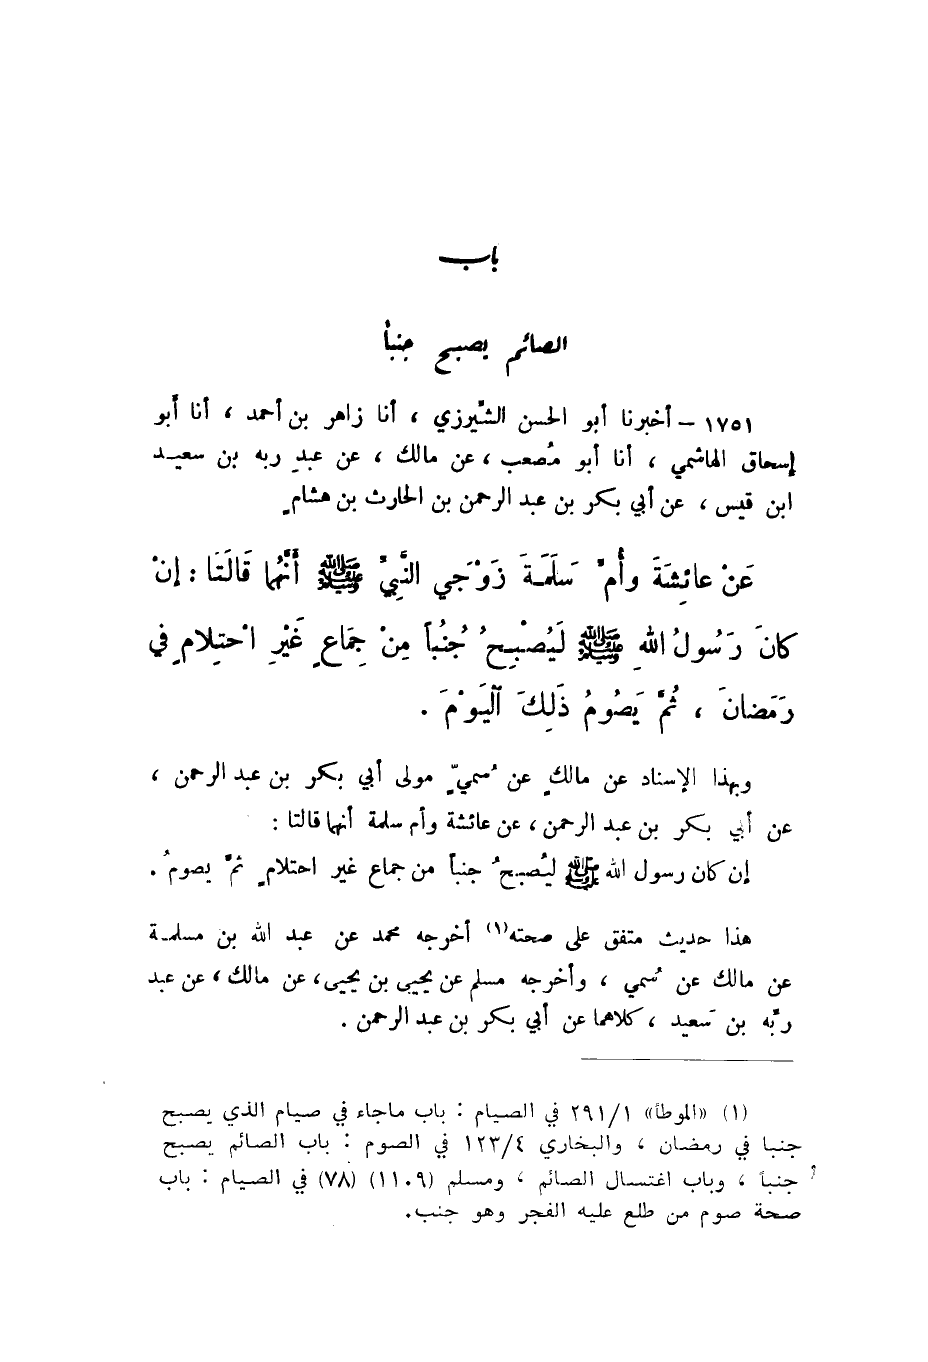 باب
الصائم يصبح جنباً
١٧٥١ – أخبرنا أبو الحسن الشِّيرزي ، أنا زاهر بن أحمد ، أنا أَبو
إسحاق الهاشمي ، أنا أبو مُصعب ، عن مالك ، عن عبدِ ربه بن سعيد
ابن قيس ، عن أبي بكر بن عبد الرحمن بن الحارث بن هشامٍ
عَنْ عائِشَةَ وأُمِّ سَلَمَةَ زَوْجَي النَّبِيِّ ﷺ أَنَّهُما قَالَتَا : إنْ
كانَ رَسُولُ اللهِ ﷺ لَيُصْبِحُ جُنُباً مِنْ جِمَاعٍ غَيْرِ احْتِلامٍ في
رَمَضانَ ، ثُمَّ يَصُومُ ذَلِكَ ٱليَوْمَ .
وبهذا الإسناد عن مالكٍ عن سُميٍّ مولى أبي بكر بن عبد الرحمن ،
عن أبي بكر بن عبد الرحمن ، عن عائشة وأم سلمة أنهما قالتا :
إن كان رسول الله ﷺ ليُصبحُ جنباً من جماع غير احتلامٍ ثمَّ يصومُ .
هذا حديث متفق على صحته(١) أخرجه محمد عن عبد الله بن مسلمة
عن مالك عن سُمي ، وأخرجه مسلم عن يحيى بن يحيى ، عن مالك ، عن عبد
ربِّه بن سَعيد ، كلاهما عن أبي بكر بن عبد الرحمن .
(١) «الموطأ» ٢٩١/١ في الصيام : باب ماجاء في صيام الذي يصبح
جنبا في رمضان ، والبخاري ١٢٣/٤ في الصوم : باب الصائم يصبح
جنباً ، وباب اغتسال الصائم ، ومسلم (١١٠٩) (٧٨) في الصيام : باب
صحة صوم من طلع عليه الفجر وهو جنب.